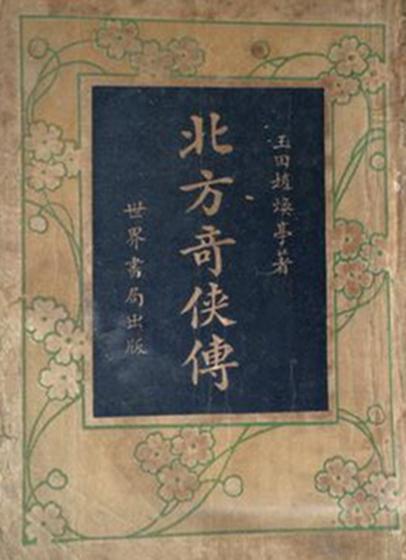 玉田趙煥亭著
北方奇俠傳
世界書局出版